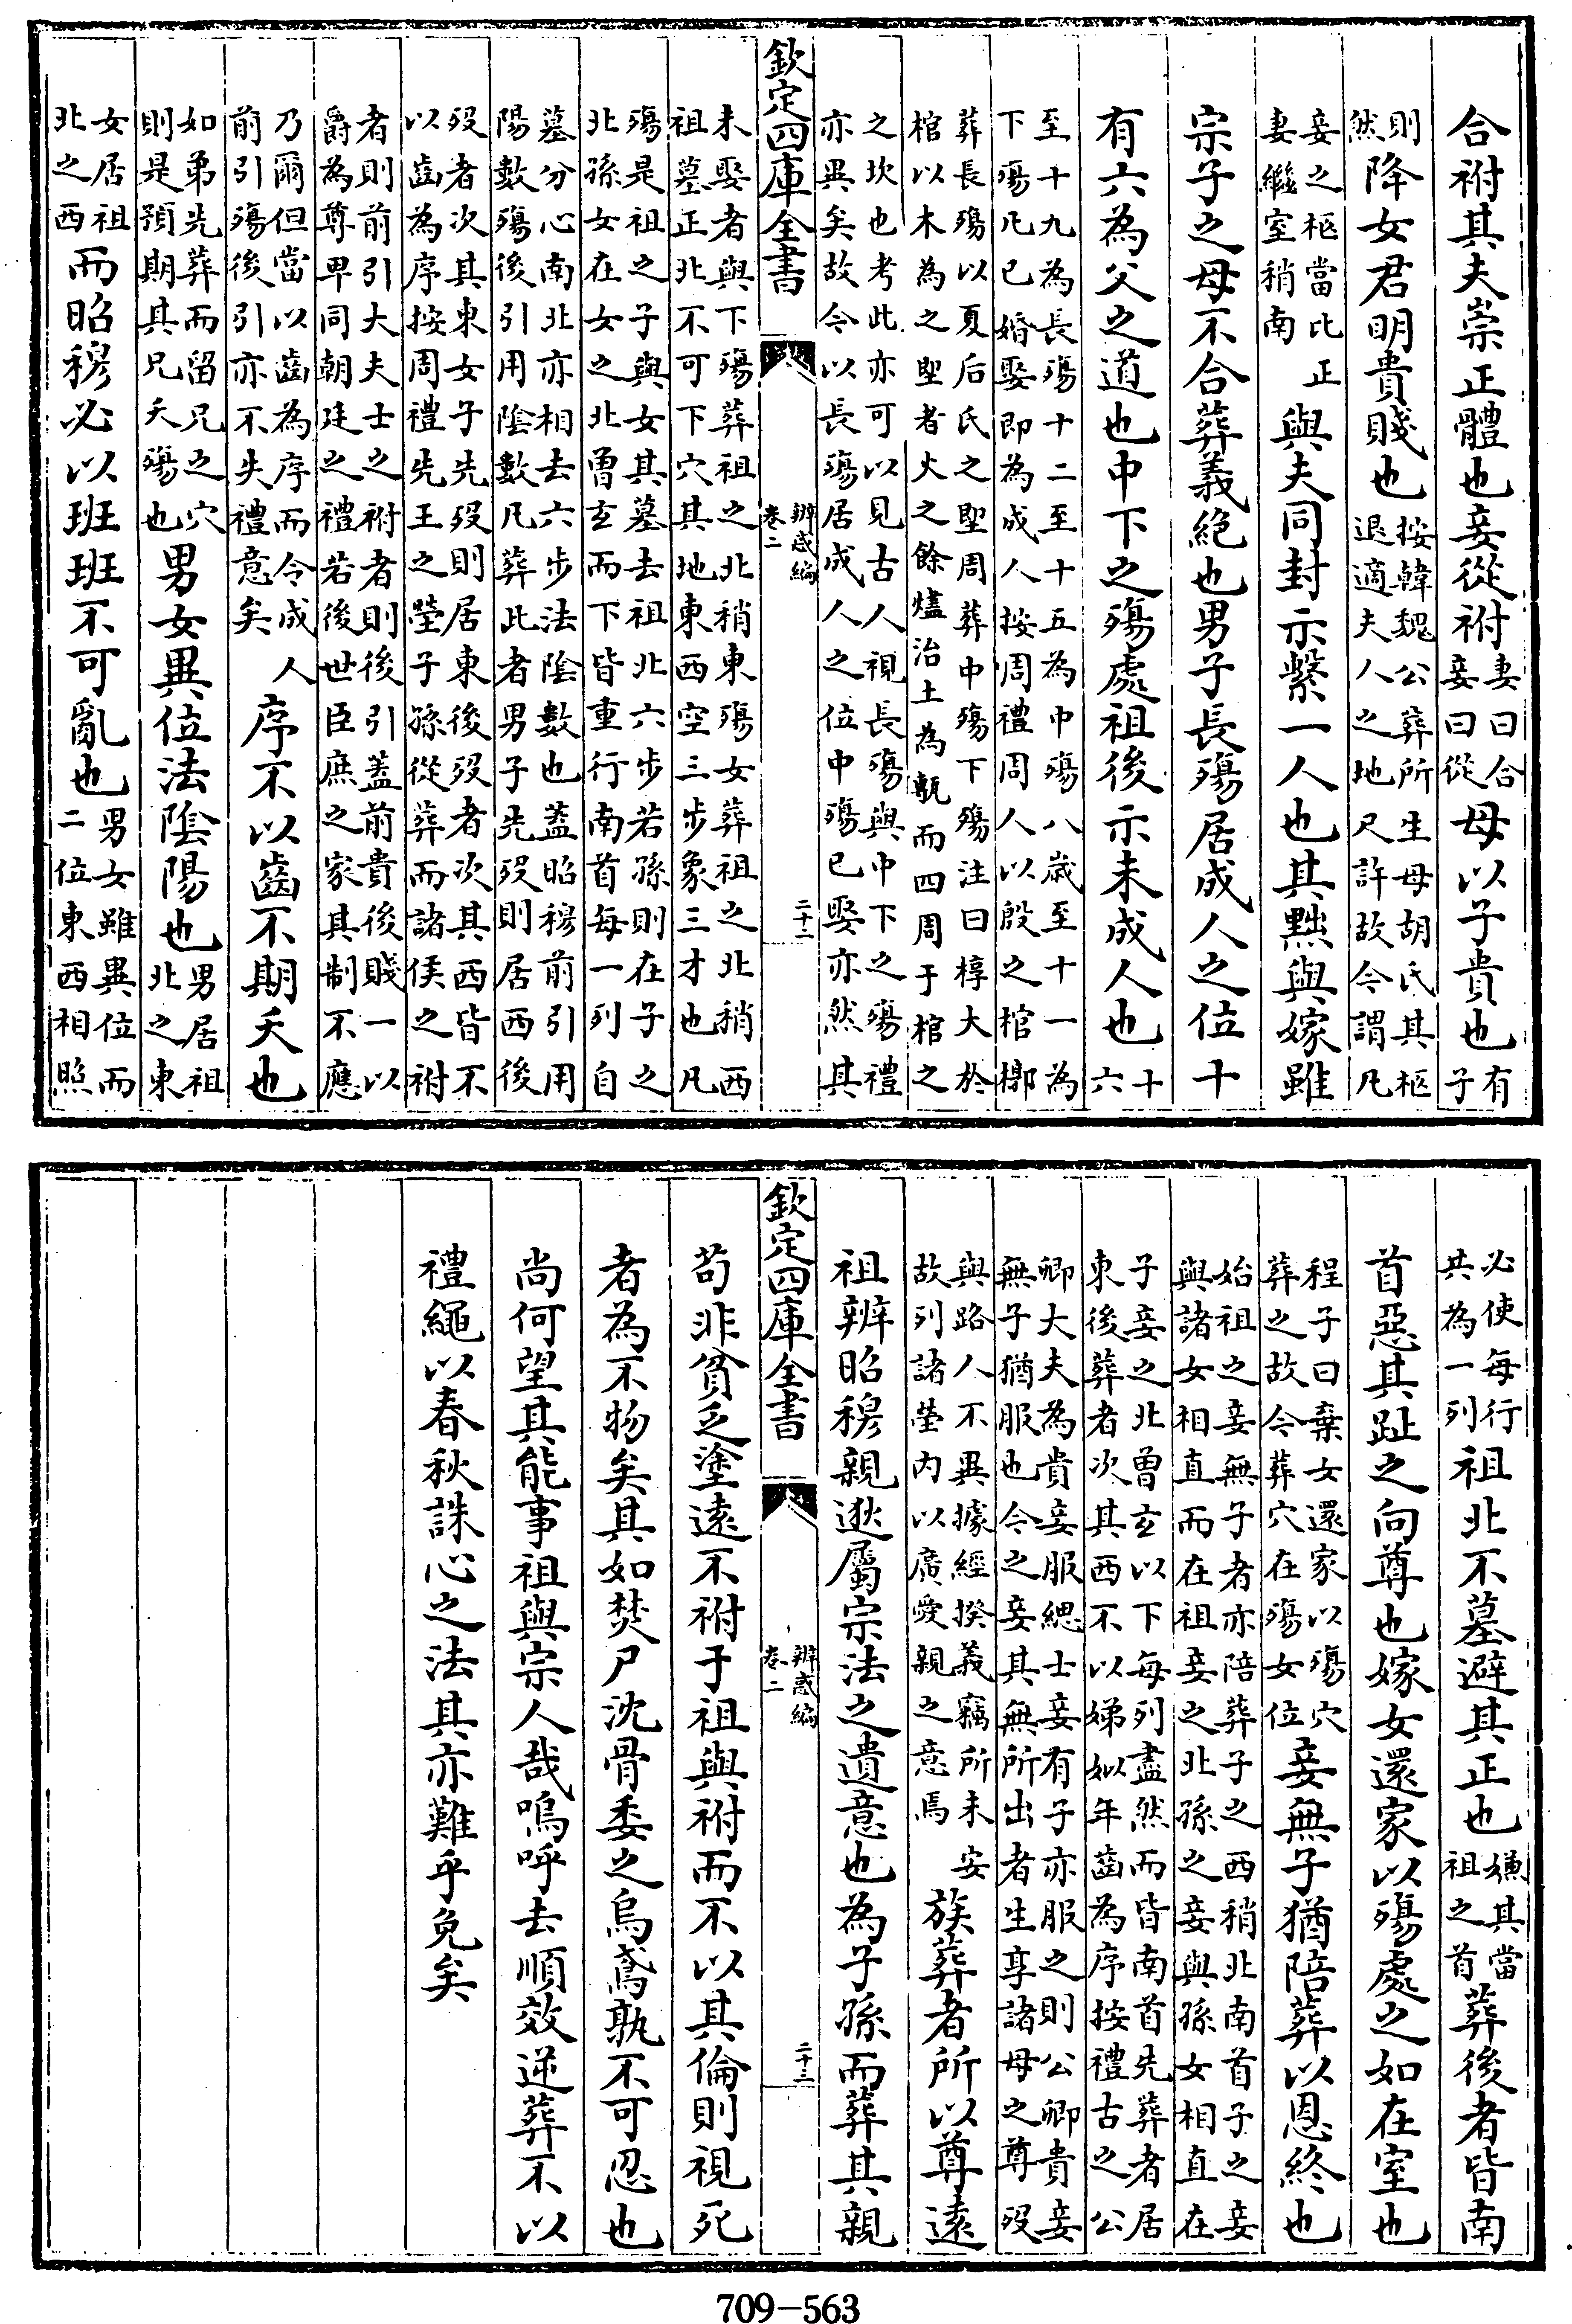 合祔其夫崇正體也妾從祔妻曰合妾曰從母以子貴也有子
則然降女君明貴賤也按韓魏公葬所生母胡氏其柩退適夫人之地尺許故今謂凡
妾之柩當比正妻繼室稍南與夫同封示繫一人也其黜與嫁雖
宗子之母不合葬義絕也男子長殤居成人之位十
有六為父之道也中下之殤處祖後示未成人也十六
至十九為長殤十二至十五為中殤八歲至十一為下殤凡已婚娶即為成人按周禮周人以殷之棺槨
葬長殤以夏后氏之堲周葬中殤下殤注曰椁大於棺以木為之堲者火之餘燼治土為甎而四周于棺之
之坎也考此亦可以見古人視長殤與中下之殤禮亦異矣故令以長殤居成人之位中殤已娶亦然其
欽定四庫全書 辨惑編 卷二 二十二
未娶者與下殤葬祖之北稍東殤女葬祖之北稍西祖墓正北不可下穴其地東西空三步象三才也凡
殤是祖之子與女其墓去祖北六步若孫則在子之北孫女在女之北曾玄而下皆重行南首每一列自
墓分心南北亦相去六步法陰數也蓋昭穆前引用陽數殤後引用陰數凡葬此者男子先歿則居西後
歿者次其東女子先歿則居東後歿者次其西皆不以齒為序按周禮先王之塋子孫從葬而諸侯之祔
者則前引大夫士之祔者則後引蓋前貴後賤一以爵為尊卑同朝廷之禮若後世臣庶之家其制不應
乃爾但當以齒為序而令成人前引殤後引亦不失禮意矣序不以齒不期夭也
如弟先葬而留兄之穴則是預期其兄夭殤也男女異位法陰陽也男居祖北之東
女居祖北之西而昭穆必以班班不可亂也男女雖異位而二位東西相照
必使每行共為一列祖北不墓避其正也嫌其當祖之首葬後者皆南
首惡其趾之向尊也嫁女還家以殤處之如在室也
程子曰棄女還家以殤穴葬之故今葬穴在殤女位妾無子猶陪葬以恩終也
始祖之妾無子者亦陪葬子之西稍北南首子之妾與諸女相直而在祖妾之北孫之妾與孫女相直在
子妾之北曾玄以下每列盡然而皆南首先葬者居東後葬者次其西不以娣姒年齒為序按禮古之公
卿大夫為貴妾服緦士妾有子亦服之則公卿貴妾無子猶服也今之妾其無所出者生享諸母之尊歿
與路人不異據經揆義竊所未安故列諸塋内以廣愛親之意焉族葬者所以尊遠
祖辨昭穆親逖屬宗法之遺意也為子孫而葬其親
欽定四庫全書 辨惑編 卷二 二十三
苟非貧乏塗遠不祔于祖與祔而不以其倫則視死
者為不物矣其如焚尸沈骨委之烏鳶孰不可忍也
尚何望其能事祖與宗人哉嗚呼去順效逆葬不以
禮繩以春秋誅心之法其亦難乎免矣
709-563